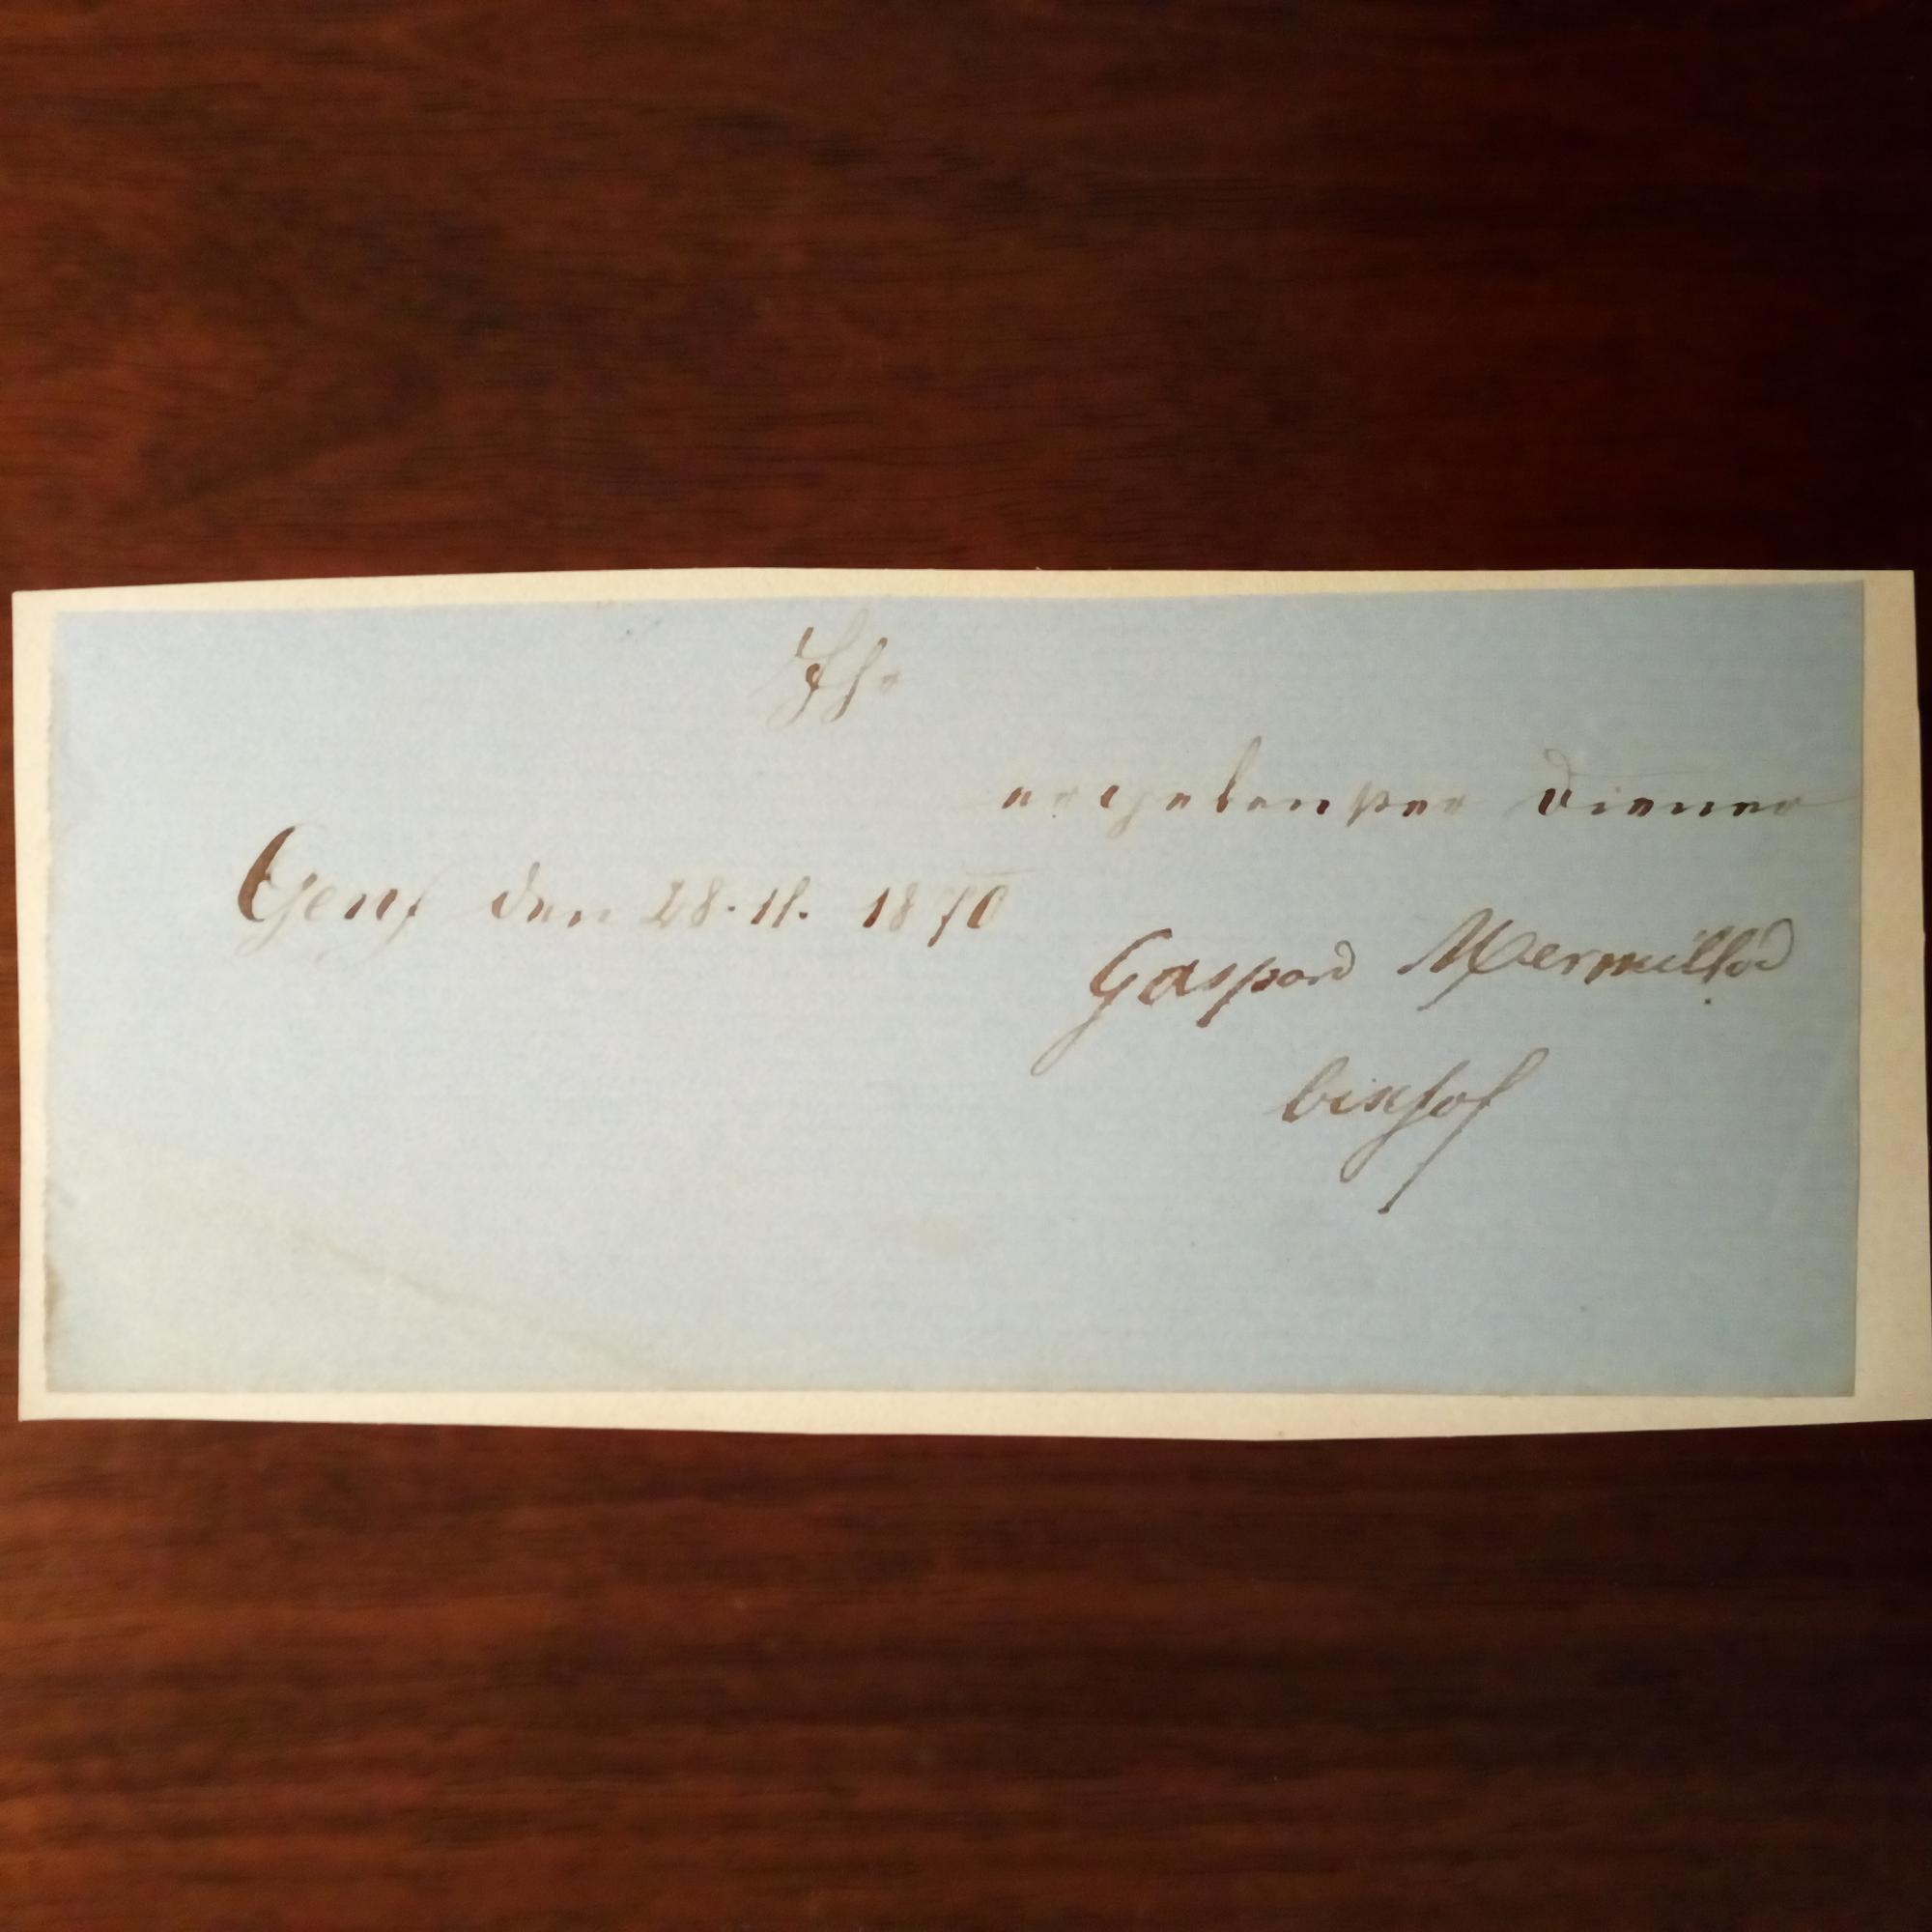 Ihr
ergebenster Diener
Genf den 28. 11. 1870
Gaspard Mermillod
bischof